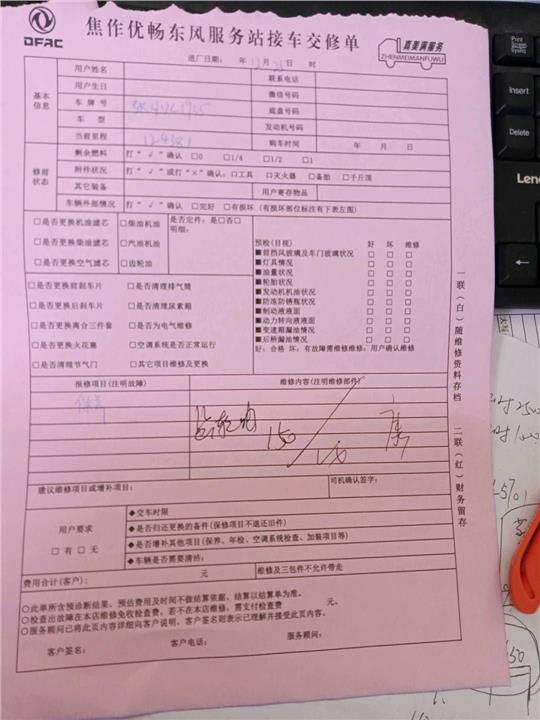 DFAC
焦作优畅东风服务站接车交修单
真美满服务
ZHENMEIMANFUWU
进厂日期: 年12月 日 时
基本信息
用户姓名 联系电话
用户生日 微信号码
车牌号 底盘号码
车型 发动机号码
当前里程 购车时间 年 月 日
修前状态
剩余燃料 打“√”确认 □0 □1/4 □1/2 □1
附件状况 打“√”或打“×”确认:□工具 □灭火器 □备胎 □千斤顶
其它装备 用户寄存物品
车辆外部情况 打“√”确认 □完好 □有损坏(有损坏部位标注有下表左图)
□是否更换机油滤芯 □柴油机油
□是否更换柴油滤芯 □汽油机油
□是否更换空气滤芯 □齿轮油
是否定件:是□否□
明细:
□是否更换前刹车片 □是否清理排气筒
□是否更换后刹车片 □是否清理尿素箱
□是否更换离合三件套 □是否为电气维修
□是否更换火花塞 □空调系统是否正常运行
□是否清理节气门 □其它项目维修及更换
预检(目视) 好 坏 维修
■前挡风玻璃及车门玻璃状况 □ □ □
■灯具情况 □ □ □
■油量状况 □ □ □
■轮胎状况 □ □ □
■发动机机油状况 □ □ □
■防冻防锈瓶状况 □ □ □
■制动液液面 □ □ □
■动力转向液液面 □ □ □
■变速箱漏油情况 □ □ □
■后桥漏油情况 □ □ □
好:合格 坏:有故障需维修维修:用户确认维修
报修项目(注明故障) 维修内容(注明维修部件)
保养
150
建议维修项目或增补项目: 司机确认签字:
用户要求
□有 □无
◆交车时限
◆是否归还更换的备件(保修项目不退还旧件)
◆是否增补其他项目(保养、年检、空调系统检查、加装项目等)
◆车辆是否需要清洁:
费用合计(客户): 元 维修及三包件不允许带走
○此单所含预诊断结果、预估费用及时间不做结算依据,结算以结算单为准。
○检查出故障在本店维修免收检查费,若不在本店维修,需支付检查费 元。
○服务顾问已将此页内容详细向客户说明,客户签名则表示已理解并接受此页内容。
客户签名: 客户电话: 服务顾问:
一联(白)随维修资料存档 二联(红)财务留存
Print
Screen
SysRq
Insert
Delete
Leno